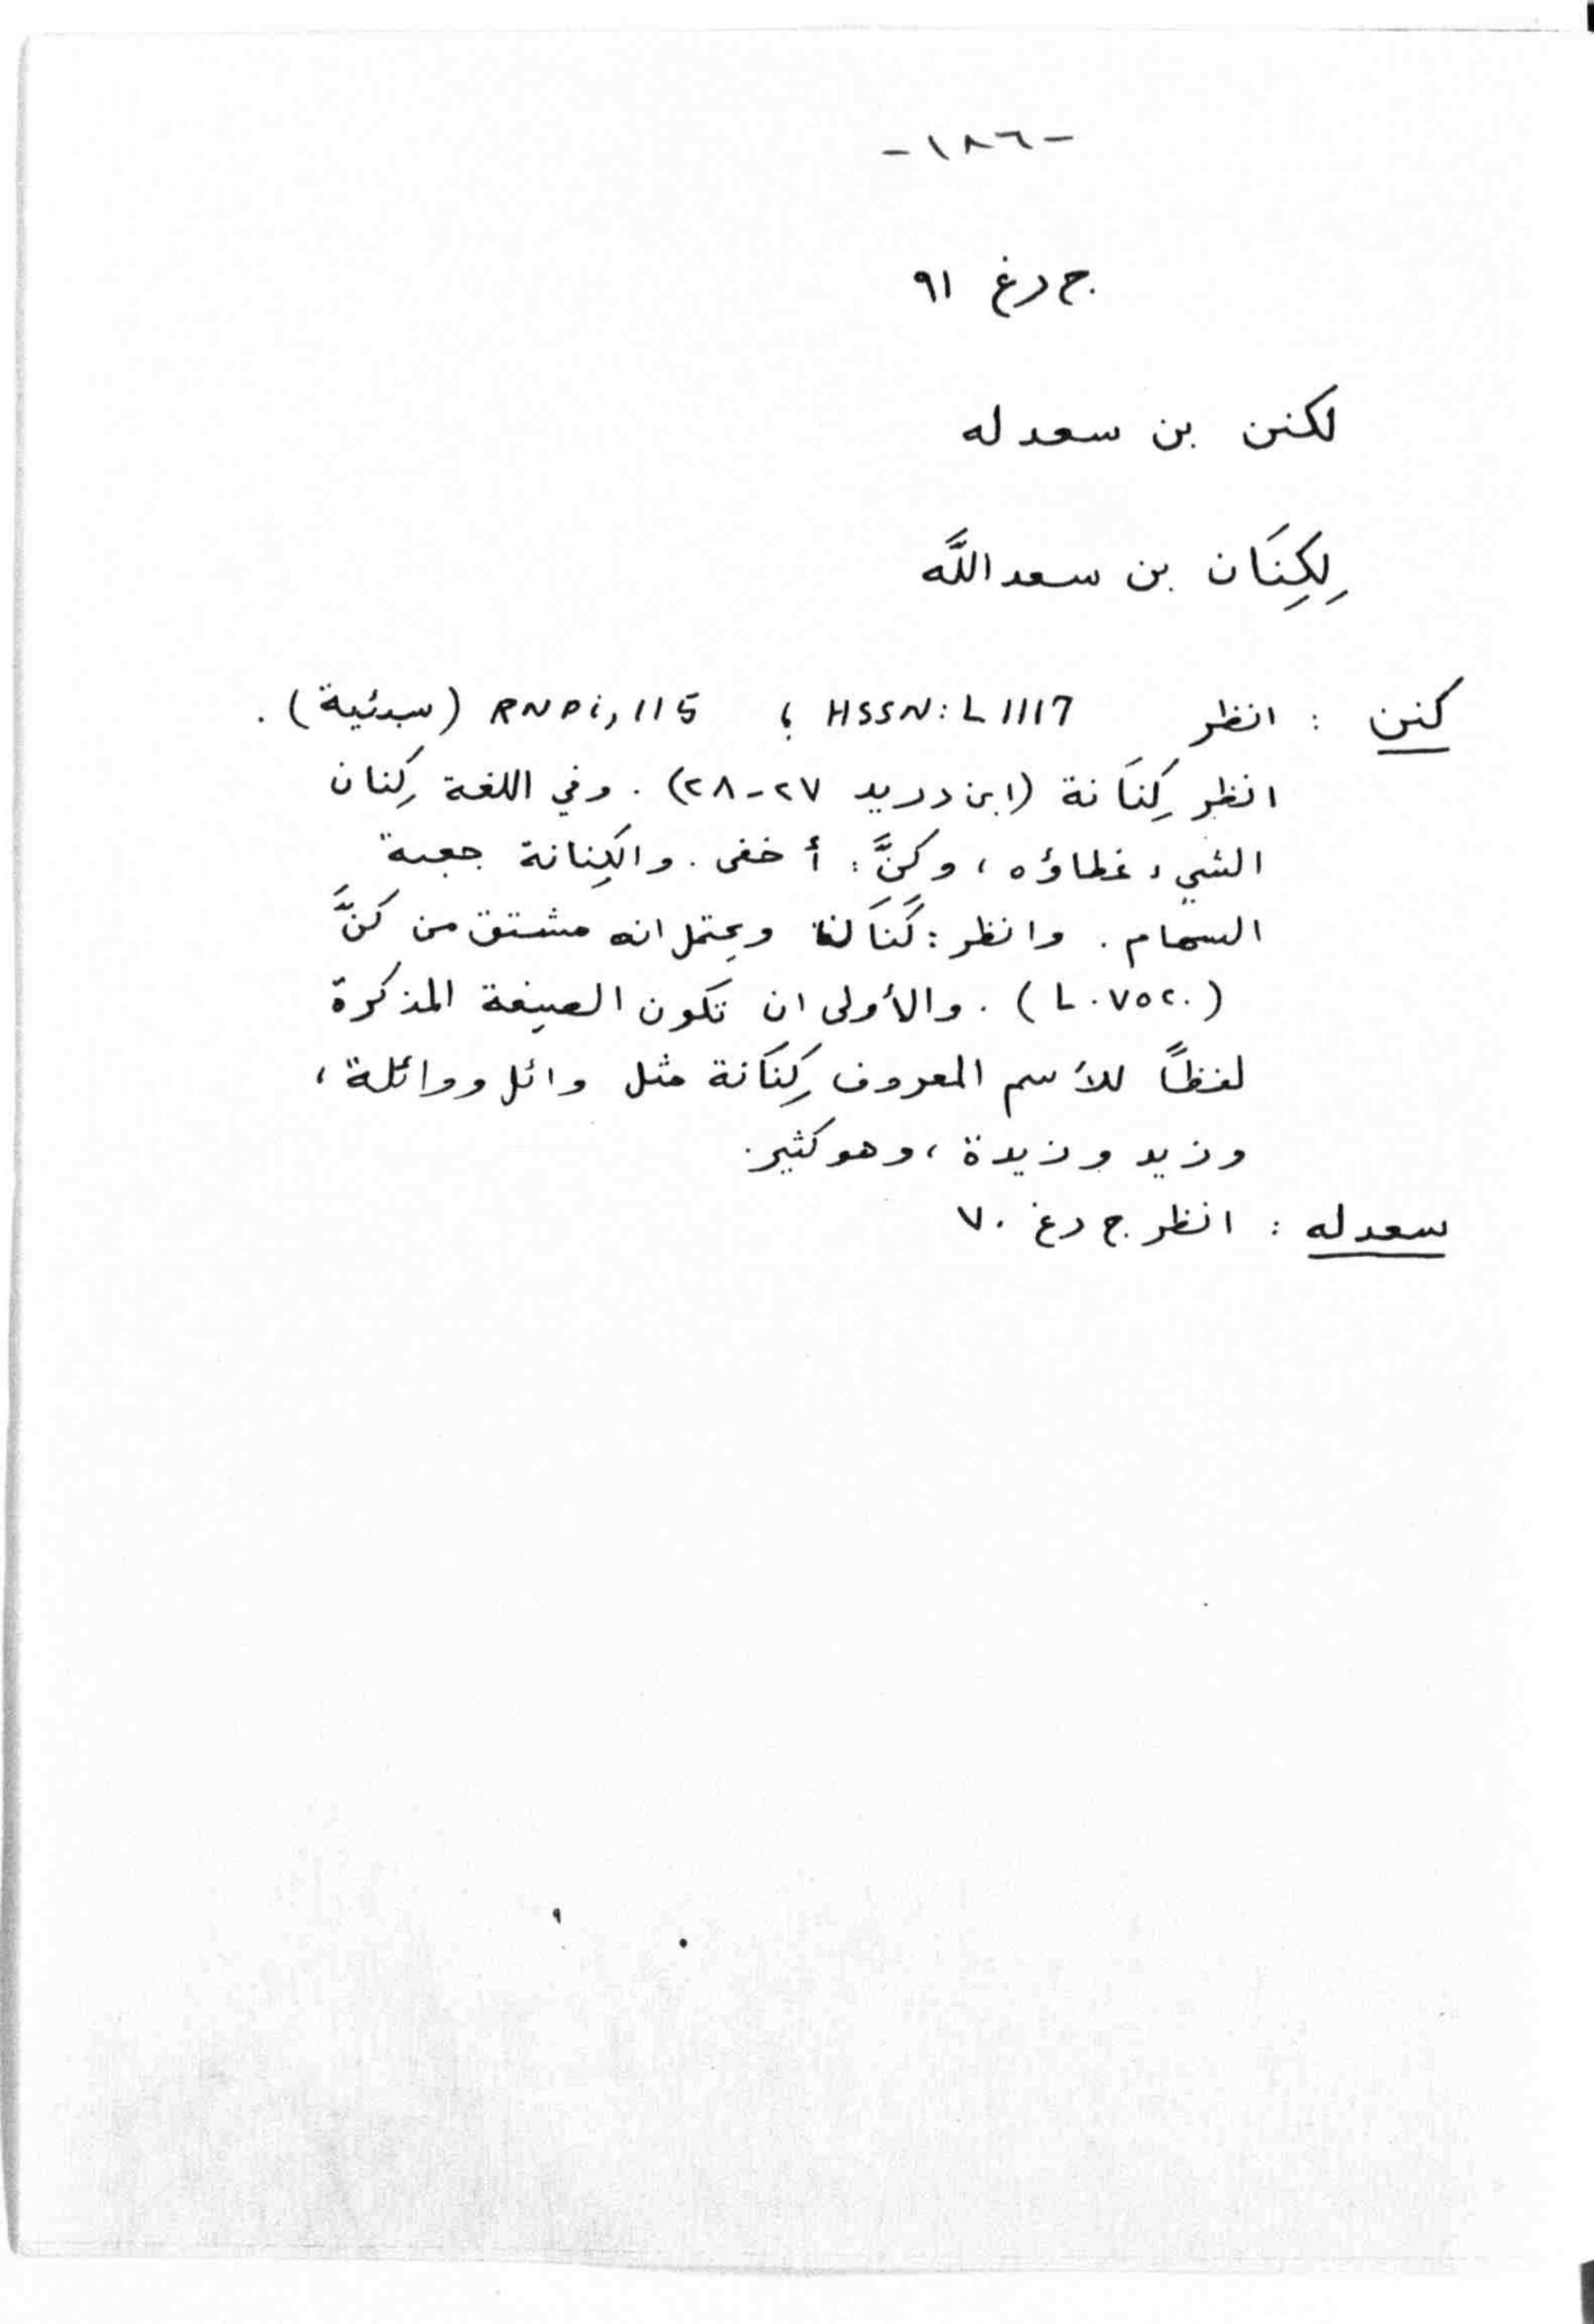 -١٨٦-
ج درغ ٩١
لكنن بن سعد له
لِكِنَان بن سعد اللَّه
كنن : انظر HSSN: L 1117 ؛ RNPi, 115 (سبئية) .
انظر كِنَانة (ابن دريد ٢٧-٢٨) . وفي اللغة كِنان
الشيء غطاؤه ، وكنَّ : أخفى . والكِنانة جعبة
السهام . وانظر : ويحتمل انه مشتق من كنَّ
(L . ٧٥٢٠) . والأولى ان تكون الصيغة المذكرة
لفظاً للأسم المعروف كِنَانة مثل وائل ووائلة ،
وزيد وزيدة ، وهو كثير .
سعد له : انظر ج درغ ٧٠